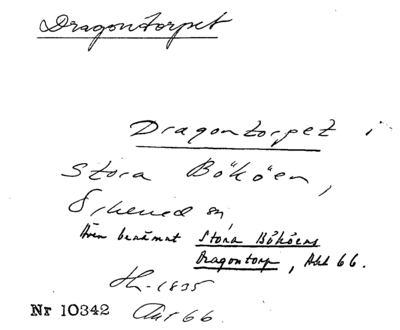 Dragontorpet
Dragontorpet i
Stora Bököen,
Även benämnt Stora Bököens
Dragontorp, Abd 66.
Hl. 1835
Nr 10342